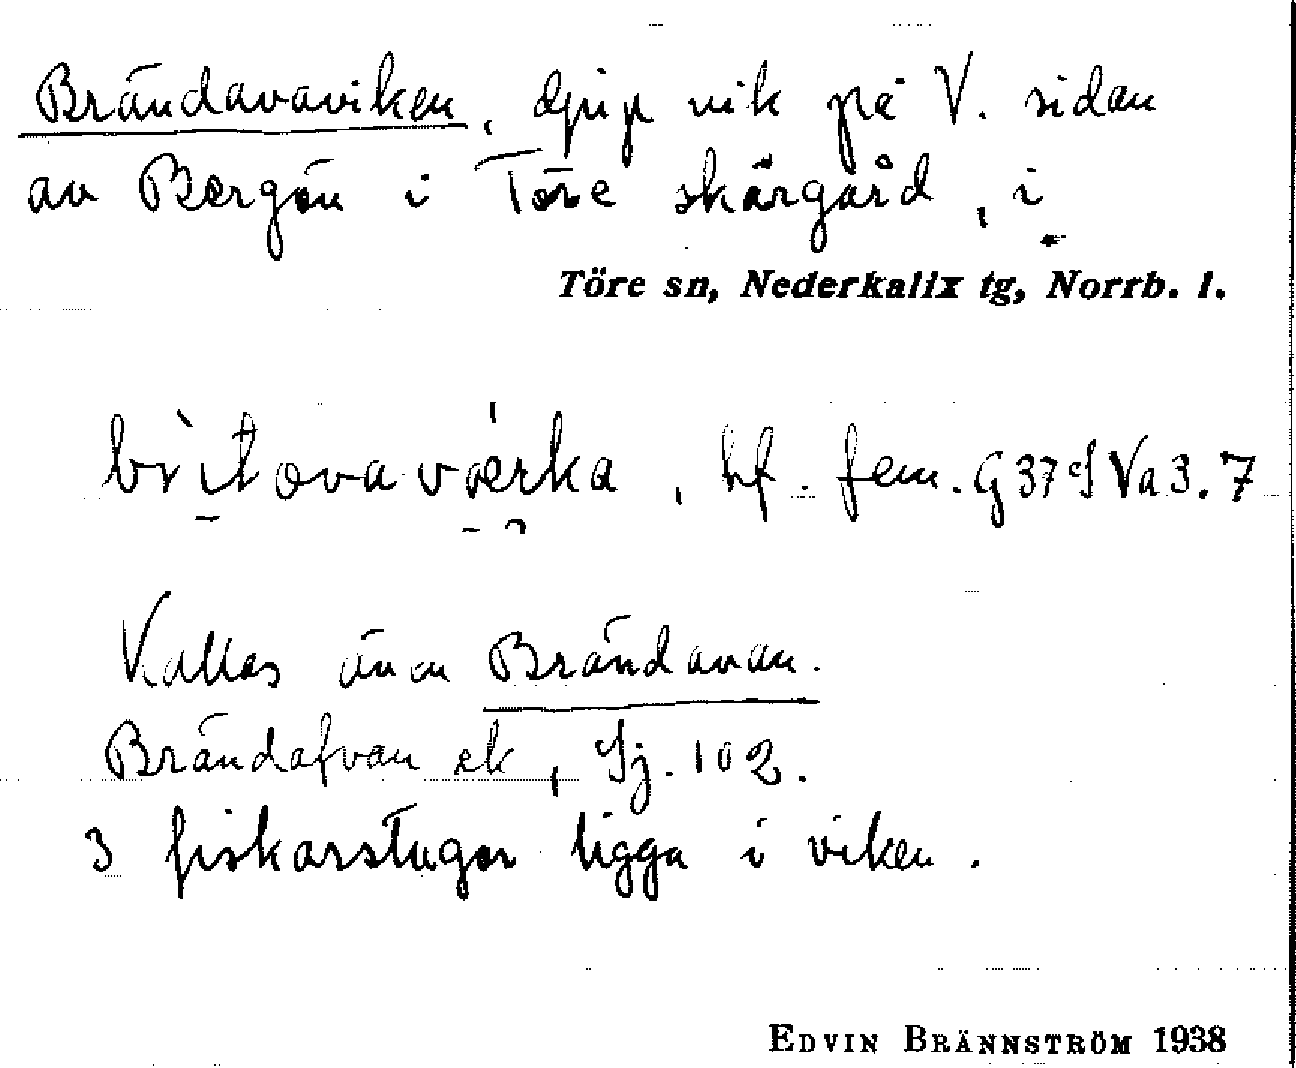 Brändavaviken, djup vik på V. sidan
av Bergön i Töre skärgård, i
Töre sn, Nederkalix tg, Norrb. l.
bf. fem. G 37 Va 3.7
Kallas även Brändavan.
Brändafvan ek, Sj. 102.
3 fiskarstugor ligga i viken.
EDVIN BRÄNNSTRÖM 1938